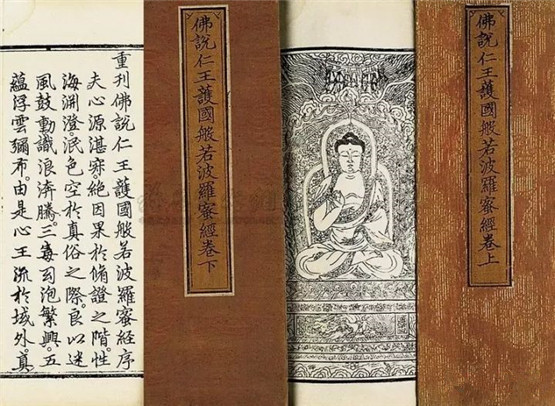 佛說仁王護國般若波羅蜜經卷上
佛說仁王護國般若波羅蜜經卷下
重刊佛說仁王護國般若波羅蜜經序
夫心源湛寂絕因果於脩證之階。性
海淵澄。泯色空於真俗之際。良以迷
風鼓動識浪濟騰。三毒宏泡繁興。五
蘊浮雲彌布。由是心王流於域外真